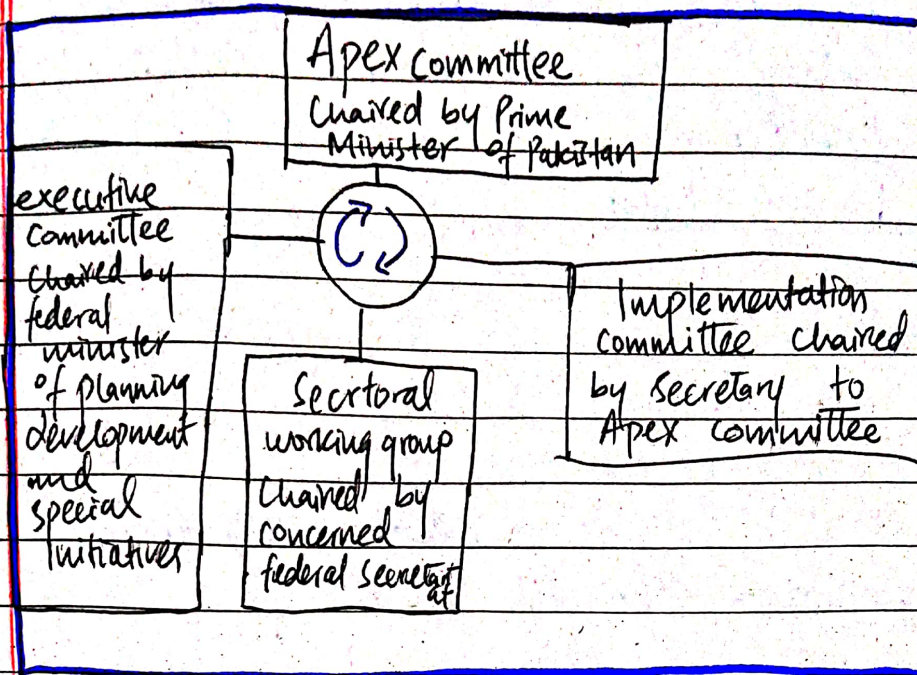 Apex committee
Chaired by Prime
Minister of Pakistan
executive
committee
chaired by
federal
minister
of planning
development
and
special
Initiatives
Secrtoral
working group
Chaired by
concerned
federal secretari
at
Implementation
committee chaired
by secretary to
Apex committee